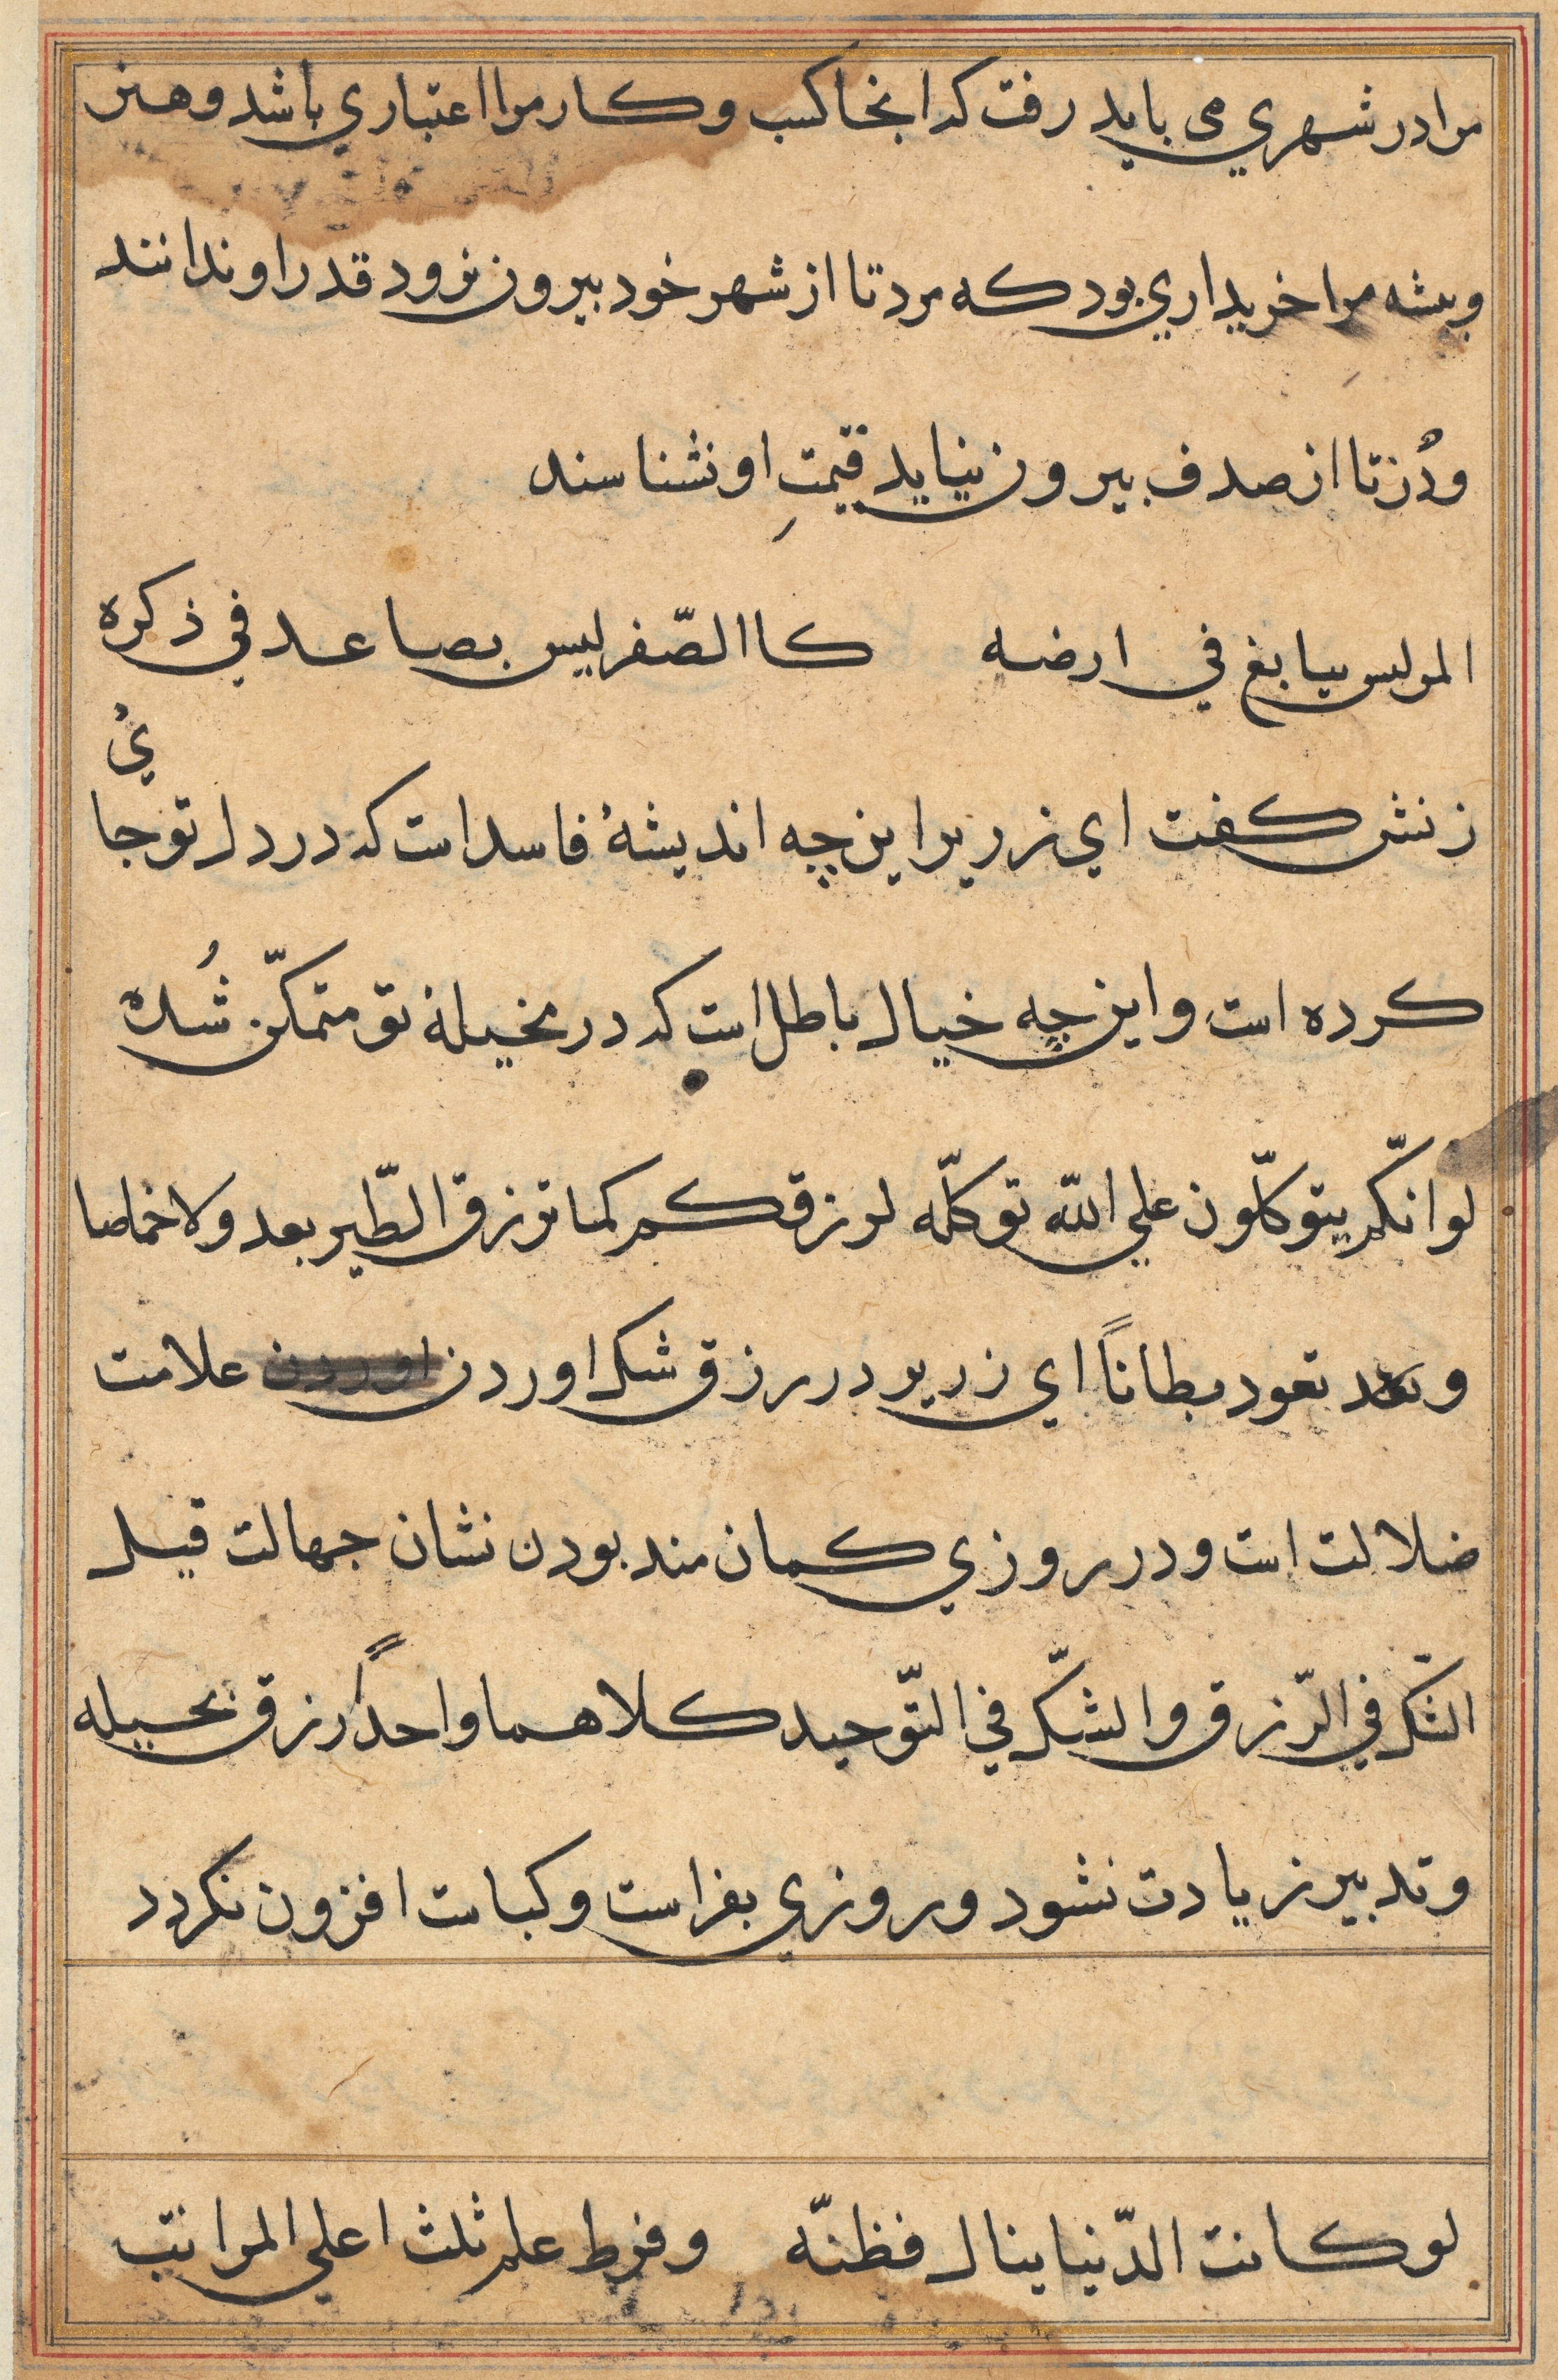 مرا در شهري مي بايد رفت که انجا کسب و کار مرا اعتباري باشد و هنر
و پیشه مرا خريداري بود که مرد تا از شهر خود بيرون نرود قدر او ندانند
و دُر تا از صدف بيرون نيايد قيمتِ او نشناسند
المر ليس ببابغ في ارضه کاالصّفر ليس بصاعد في ذکره
زنش کفت اي زرير اين چه انديشهٔ فاسد است که در دل تو جا
يُ
کرده است و اين چه خيال باطل است که در مخيلهٔ تو متمکّن شُده
لو انّکم يتوکّلون علي اللّه توکلّه لرزقکم کما ترزق الطّير بعد و لا خماصا
و بعد تعود بطاناً اي زرير در رزق شک اوردن علامت
ضلالت است و در روزي کمان مند بودن نشان جهالت قيل
الشّک في الرّزق و الشّک في التّوحيد کلاهما واحدً رزق بحيله
و تدبير زيادت نشود و روزي بفراست و کياست افزون نکردد
لو کانت الدّنيا ينال فظنّه و فرط علم ثلث اعلي المراتب